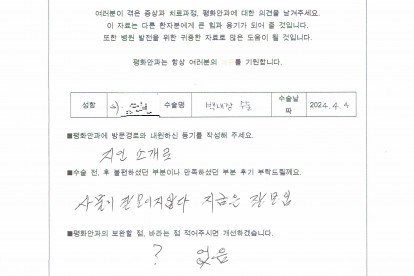 여러분이 겪은 증상과 치료과정, 평화안과에 대한 의견을 남겨주세요.
이 자료는 다른 환자분에게 큰 힘과 용기가 되어 줄 것입니다.
또한 병원 발전을 위한 귀중한 자료로 많은 도움이 될 것입니다.
평화안과는 항상 여러분의 를 기원합니다.
성함 수술명 백내장 수술 수술날짜 2024. 4. 4
■평화안과에 방문경로와 내원하신 동기를 작성해 주세요.
지인 소개로
■수술 전, 후 불편하셨던 부분이나 만족하셨던 부분 후기 부탁드릴께요.
사물이 잘 보이지 않다 지금은 잘 보임
■평화안과의 보완할 점, 바라는 점 적어주시면 개선하겠습니다.
? 없음